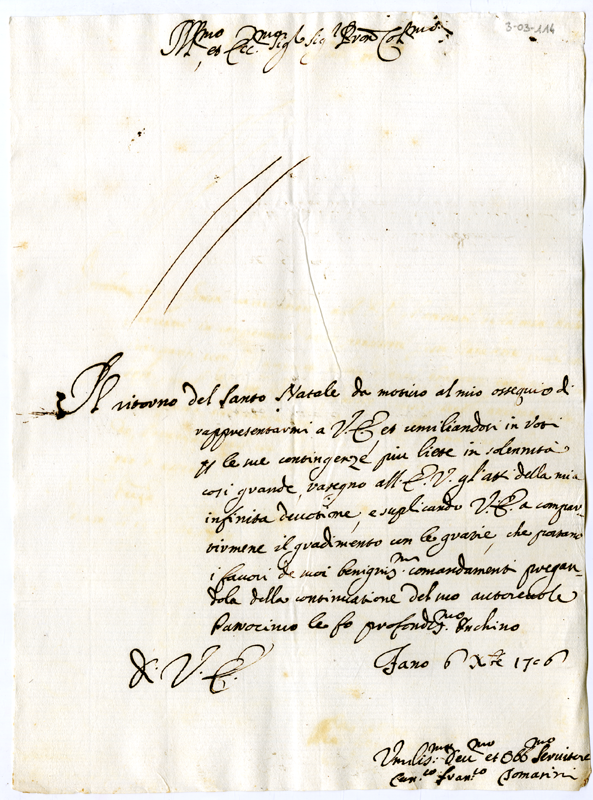 3-03-114
Ill.mo et Ecc.mo Sig.r Sig.r Pron Col.mo
Il ritorno del Santo Natale da motivo al mio ossequio di
rappresentarmi a V. E. et umiliandosi in voti
p le sue contingenze più liete in solennità
così grande, rasegno all' E. V. gl'atti della mia
infinita devotione, e suplicando V. E. a compar-
tirmene il gradimento con le grazie, che portano
i favori de suoi benignis.mi comandamenti pregan-
dola della continuatione del suo autorevole
Patrocinio le fo profondis.mo Inchino
Di V. E.
Fano 6 Xbre 1706
Umilis.mo Dev.mo et Obb.mo Servitore
Fran.co